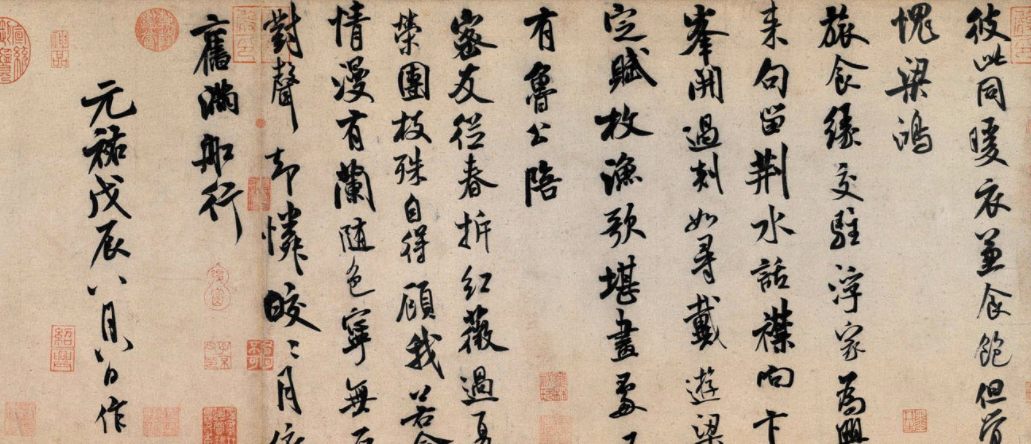 彼此同暖衣兼食飽但覺
愧梁鴻
旅食緣交駐浮家為興
来句留荆水話襟向卞
峯開過剡如尋戴遊梁
定賦枚漁歌堪畫處又
有魯公陪
密友從春拆紅薇過夏
榮團枝殊自得顧我若含
情漫有蘭隨色寧無石
對聲却憐皎〻月依
舊滿船行
元祐戊辰八月八日作
紹興